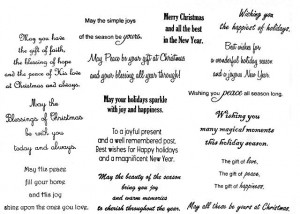 May you have
the gift of faith,
the blessing of hope
and the peace of His love
at Christmas and always.
May the simple joys
of the season be yours.
Merry Christmas
and all the best
in the New Year.
Wishing you
the happiest of holidays.
May Peace be your gift at Christmas
and your blessing all year through!
Best wishes for
a wonderful holiday season
and a joyous New Year.
Wishing you peace all season long.
May the
Blessings of Christmas
be with you
today and always.
May your holidays sparkle
with joy and happiness.
To a joyful present
and a well remembered past.
Best wishes for Happy holidays
and a magnificent New Year.
Wishing you
many magical moments
this holiday season.
The gift of love.
The gift of peace.
The gift of happiness.
May all these be yours at Christmas.
May this peace
fill your home
and this joy
shine upon the ones you love.
May the beauty of the season
bring you joy
and warm memories
to cherish throughout the year.